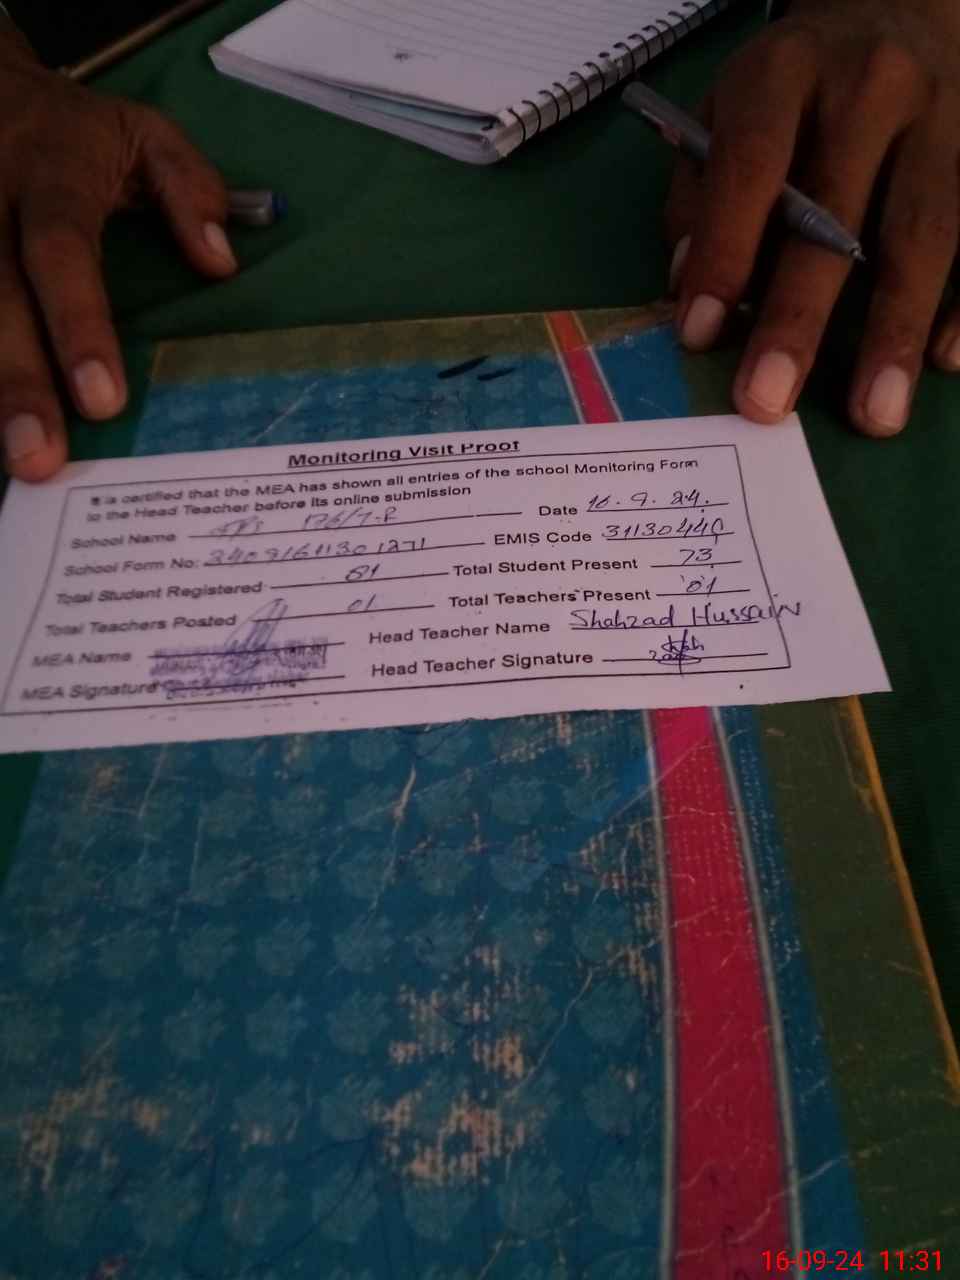 Monitoring Visit Proof
It is certified that the MEA has shown all entries of the school Monitoring Form
to the Head Teacher before its online submission
School Name 176/7-R Date 16.9.24.
School Form No: EMIS Code 31130440
Total Student Registered 81 Total Student Present 73
Total Teachers Posted 01 Total Teachers Present '01
MEA Name Head Teacher Name Shahzad Hussain
MEA Signature Head Teacher Signature
16-09-24 11:31